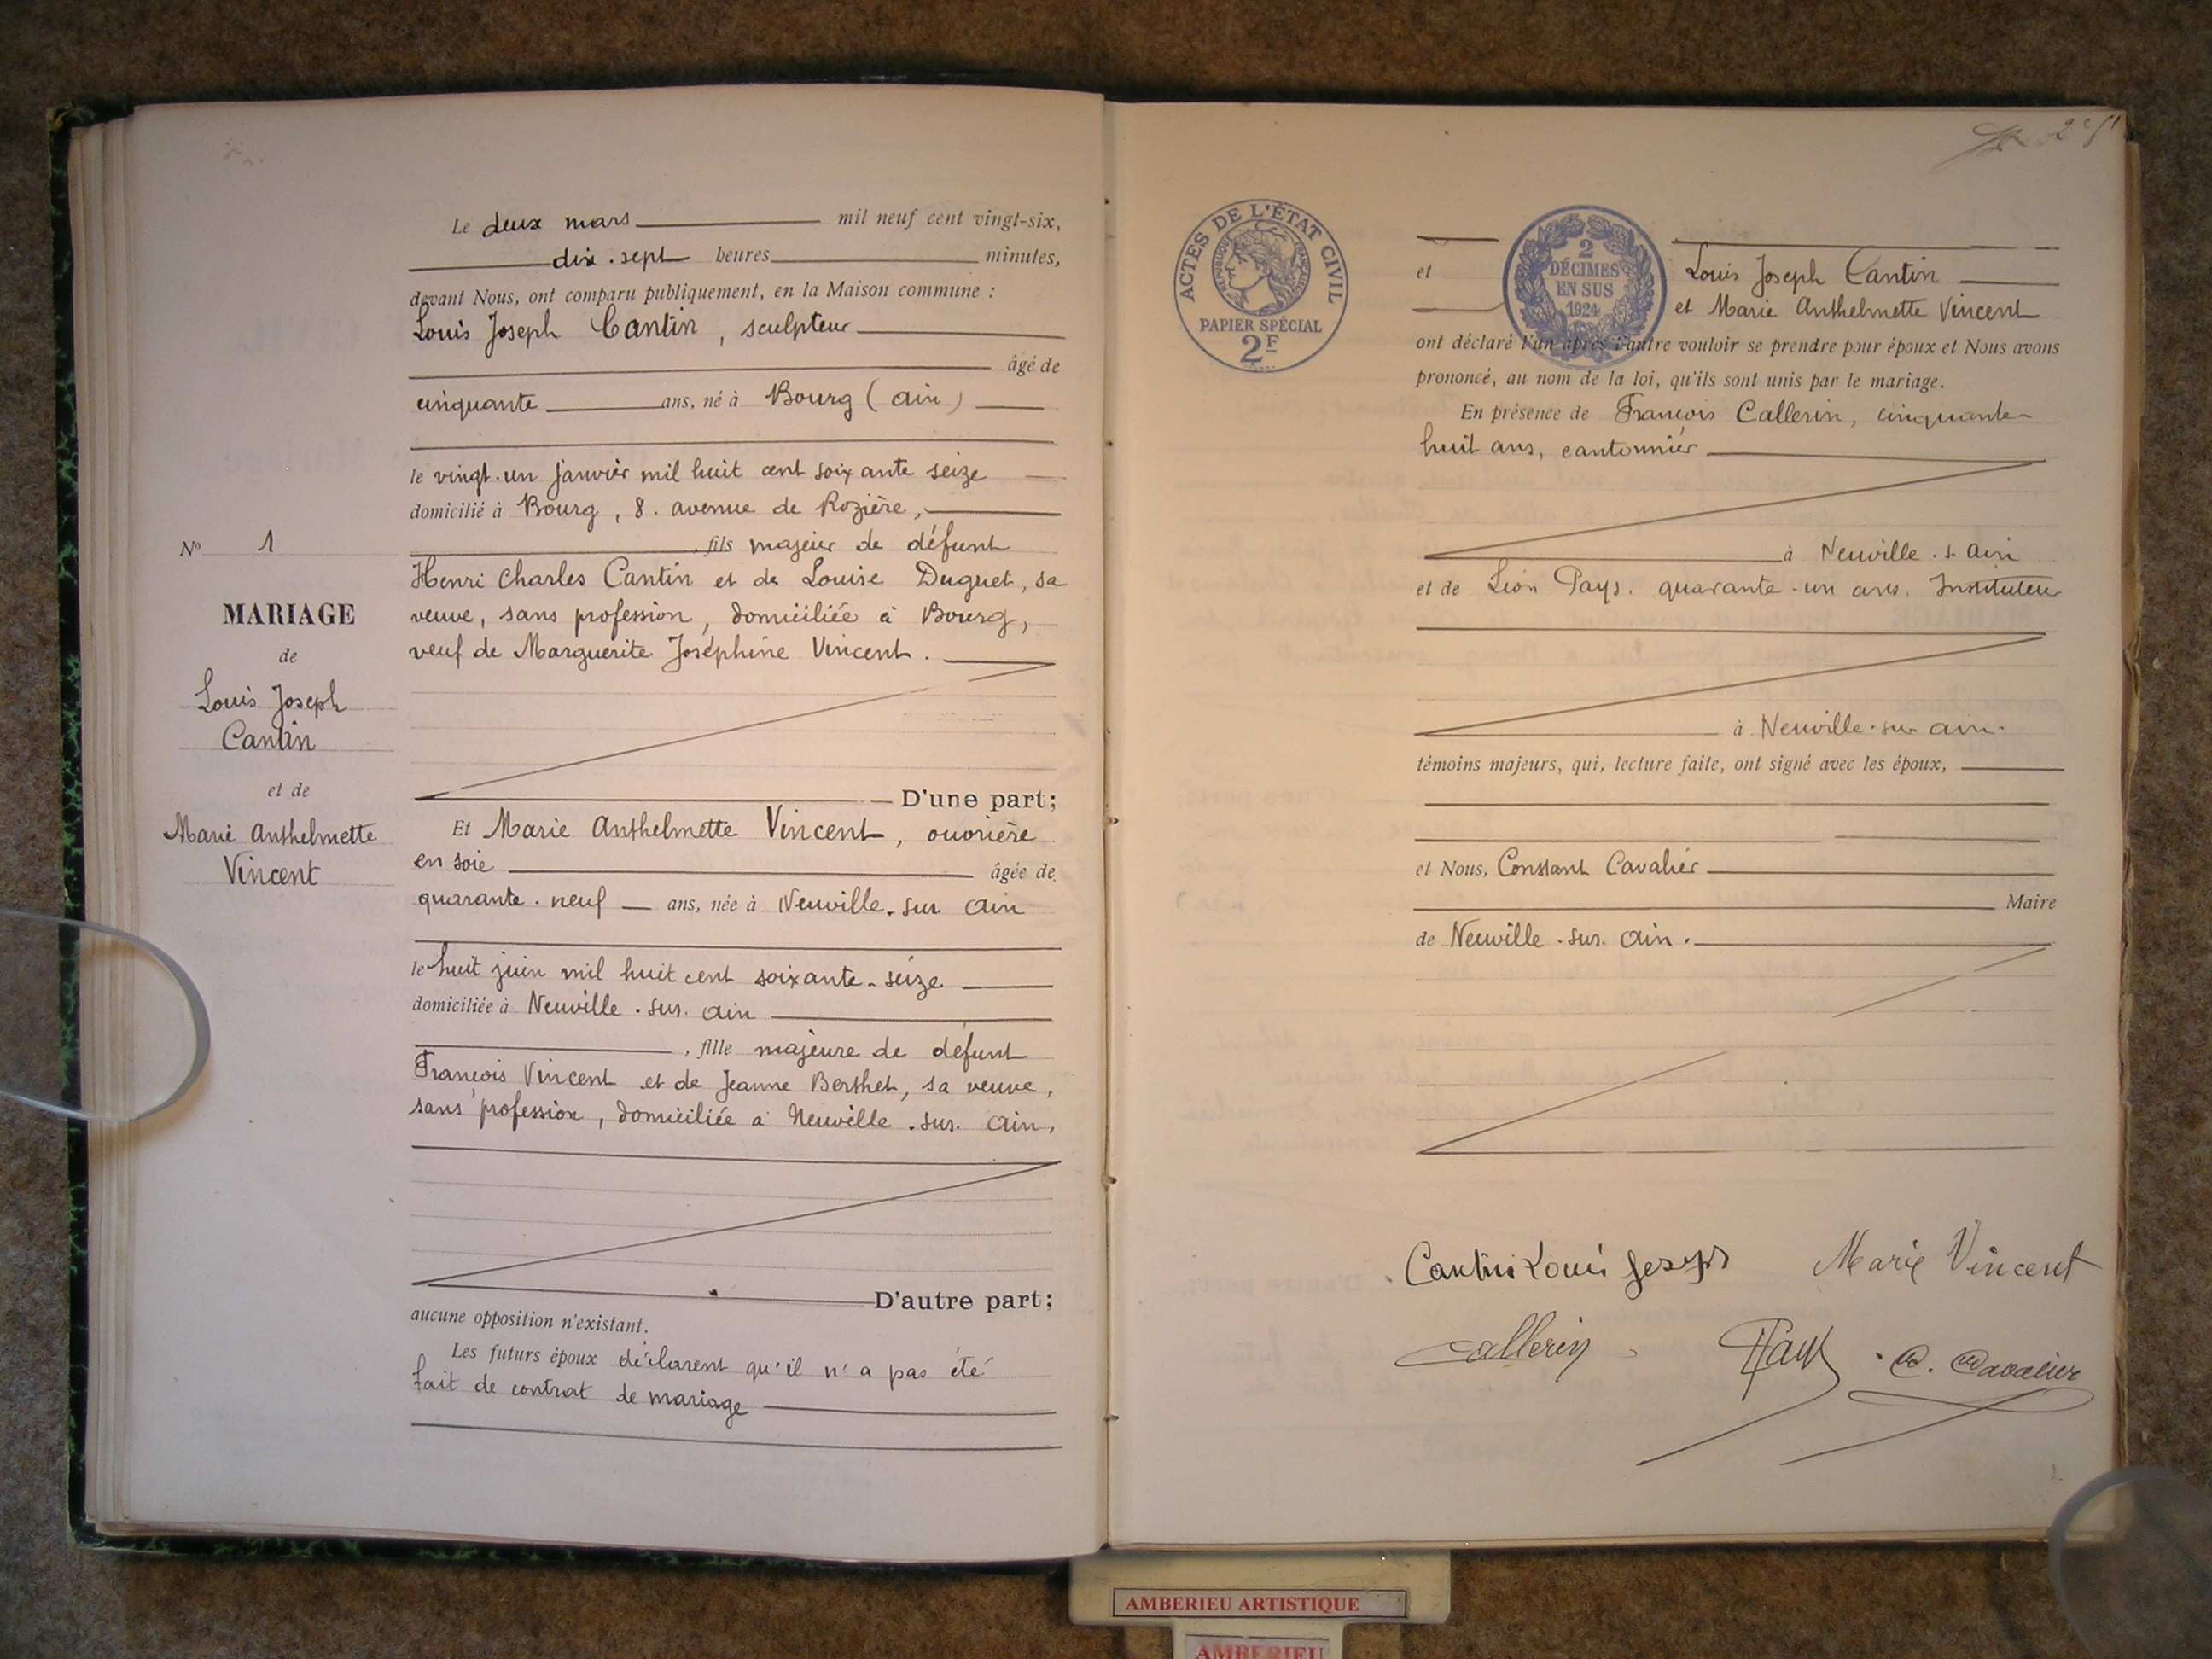 Le deux mars mil neuf cent vingt-six,
dix.sept heures minutes,
devant Nous, ont comparu publiquement, en la Maison commune :
Louis Joseph Cantin, sculpteur
âgé de
cinquante ans, né à Bourg (ain)
le vingt.un janvier mil huit cent soixante seize
domicilié à Bourg, 8. avenue de Rozière,
, fils majeur de défunt
Henri Charles Cantin et de Louise Duguet, sa
veuve, sans profession, domiciliée à Bourg,
veuf de Marguerite Joséphine Vincent.
D'une part;
Et Marie Anthelmette Vincent, ouvrière
en soie âgée de
quarante.neuf ans, née à Neuville.sur ain
le huit juin mil huit cent soixante-seize
domiciliée à Neuville.sur.ain
, fille majeure de défunt
François Vincent et de Jeanne Berthet, sa veuve,
sans profession, domiciliée à Neuville.sur.ain,
D'autre part;
aucune opposition n'existant.
Les futurs époux déclarent qu'il n'a pas été
fait de contrat de mariage
No 1
MARIAGE
de
Louis Joseph
Cantin
et de
Marie Anthelmette
Vincent
ACTES DE L'ÉTAT CIVIL
RÉPUBLIQUE FRANÇAISE
PAPIER SPÉCIAL
2F
2
DÉCIMES
EN SUS
1924
et Louis Joseph Cantin
et Marie Anthelmette Vincent
ont déclaré l'un après l'autre vouloir se prendre pour époux et Nous avons
prononcé, au nom de la loi, qu'ils sont unis par le mariage.
En présence de François Callerin, cinquante-
huit ans, cantonnier
à Neuville.s.ain
et de Léon Pays. quarante-un ans, Instituteur
à Neuville.sur ain.
témoins majeurs, qui, lecture faite, ont signé avec les époux,
et Nous, Constant Cavalier
Maire
de Neuville.sur.ain.
Cantin Louis Joseph Marie Vincent
Callerin Pays C. Cavalier
AMBERIEU ARTISTIQUE
AMBERIEU